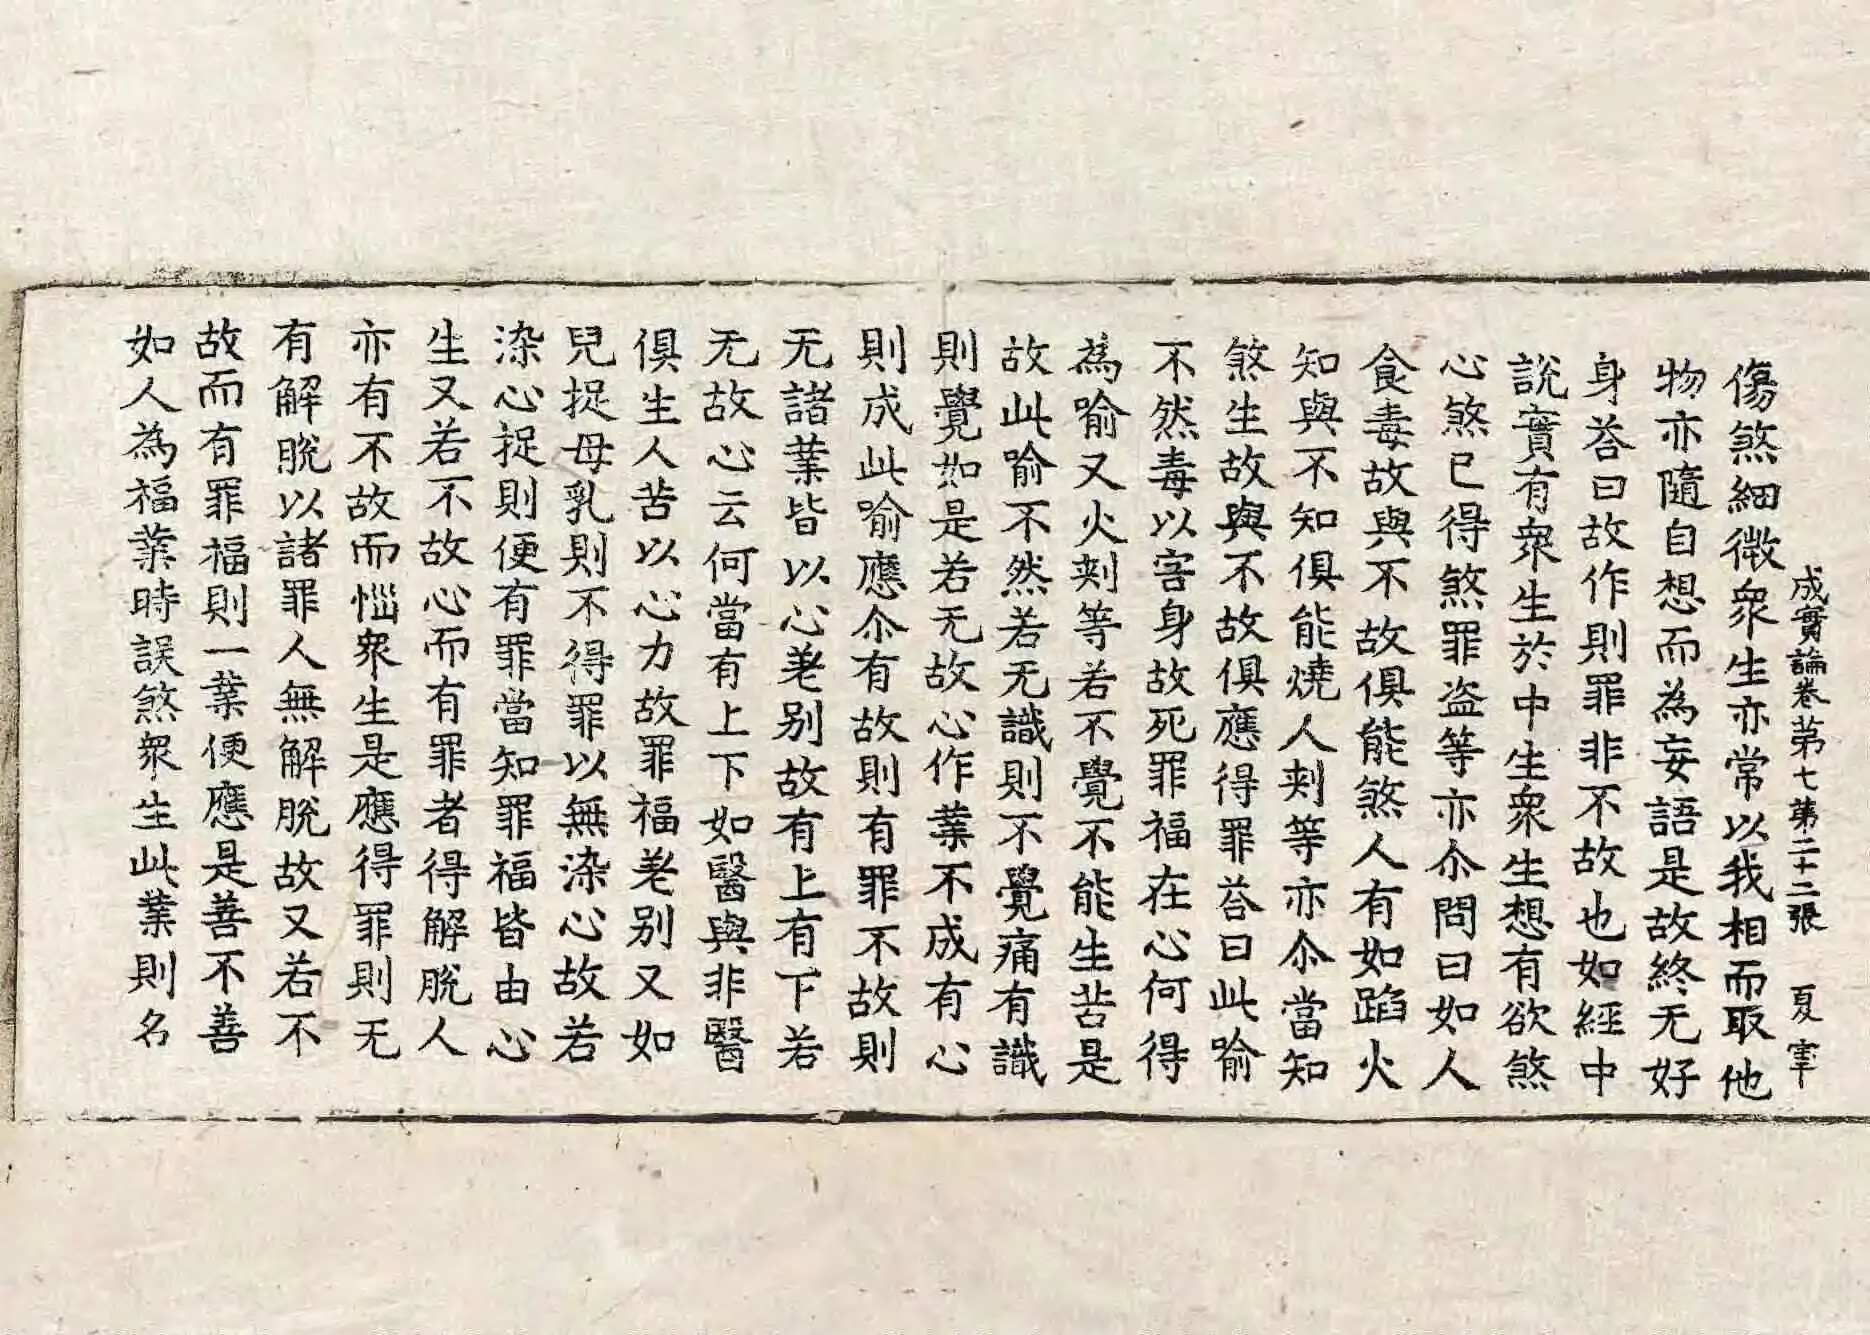 成實論卷第七 第二十二張 夏
傷煞細微衆生亦常以我相而取他
物亦隨自想而為妄語是故終无好
身荅曰故作則罪非不故也如經中
説實有衆生於中生衆生想有欲煞
心煞已得煞罪盗等亦尒問曰如人
食毒故與不故俱能煞人有如蹈火
知與不知俱能燒人刾等亦尒當知
煞生故與不故俱應得罪荅曰此喻
不然毒以害身故死罪福在心何得
為喻又火刾等若不覺不能生苦是
故此喻不然若无識則不覺痛有識
則覺如是若无故心作業不成有心
則成此喻應尒有故則有罪不故則
无諸業皆以心差别故有上有下若
无故心云何當有上下如醫與非醫
俱生人苦以心力故罪福差别又如
兒捉母乳則不得罪以無染心故若
染心捉則便有罪當知罪福皆由心
生又若不故心而有罪者得解脱人
亦有不故而惱衆生是應得罪則无
有解脱以諸罪人無解脱故又若不
故而有罪福則一業便應是善不善
如人為福業時誤煞衆生此業則名